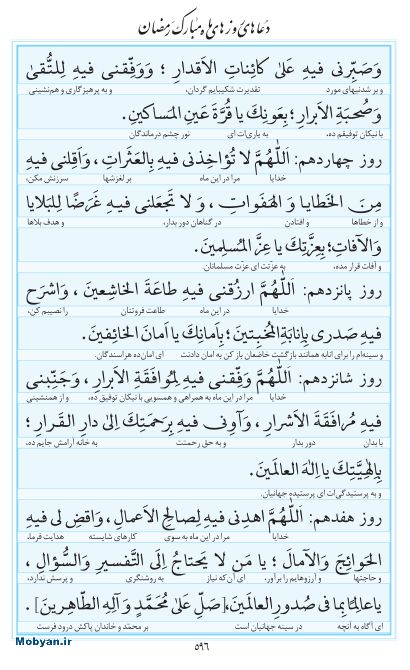 دعاهای روزهای ماه مبارک رمضان
وَصَبِّرْنی فیهِ عَلیٰ کائِناتِ الاَقدارِ ؛ وَوَفِّقنی فیهِ لِلتُّقیٰ
و بر شدنیهای مورد تقدیرت شکیبایم گردان، و به پرهیزگاری و هم‌نشینی
وَصُحبَةِ الاَبرارِ ؛ بِعَونِکَ یا قُرَّةَ عَینِ المَساکینِ.
با نیکان توفیقم ده، به یاری‌ات ای نور چشم درماندگان
روز چهاردهم: اَللّٰهُمَّ لا تُؤاخِذنی فیهِ بِالعَثَراتِ ، وَاَقِلنی فیهِ
خدایا مرا در این ماه بر لغزشها سرزنش مکن،
مِنَ الخَطایا وَ الهَفَواتِ ، وَ لا تَجعَلنی فیهِ غَرَضًا لِلبَلایا
و از خطاها و افتادن در گناهان دور بدار، و هدف بلاها
وَالآفاتِ؛ بِعِزَّتِکَ یا عِزَّ المُسلِمینَ.
و آفات قرار مده، به عزتت ای عزّت مسلمانان.
روز پانزدهم: اَللّٰهُمَّ ارزُقنی فیهِ طاعَةَ الخاشِعینَ ، وَاشرَح
خدایا در این ماه طاعت فروتنان را نصیبم کن،
فیهِ صَدری بِاِنابَةِ المُخبِتینَ؛ بِاَمانِکَ یا اَمانَ الخائِفینَ.
و سینه‌ام را برای انابه همانند بازگشت خاضعان باز کن به امان دادنت ای امان ده هراسندگان.
روز شانزدهم: اَللّٰهُمَّ وَفِّقنی فیهِ لِمُوافَقَةِ الاَبرارِ ، وَجَنِّبنی
خدایا مرا در این ماه به همراهی و همسویی با نیکان توفیق ده، و از همنشینی
فیهِ مُرافَقَةَ الاَشرارِ ، وَآوِنی فیهِ بِرَحمَتِکَ اِلیٰ دارِ القَرارِ ؛
با بدان دور بدار و به حق رحمتت به خانه آرامش جایم ده،
بِاِلٰهِیَّتِکَ یا اِلٰهَ العالَمینَ.
و به پرستیدگی‌ات ای پرستیده جهانیان.
روز هفدهم: اَللّٰهُمَّ اهدِنی فیهِ لِصالِحِ الاَعمالِ، وَاقضِ لی فیهِ
خدایا مرا در این ماه به سوی کارهای شایسته هدایت فرما،
الحَوائِجَ وَالآمالَ ؛ یا مَن لا یَحتاجُ اِلَی التَّفسیرِ وَالسُّؤالِ ،
و حاجتها و آرزوهایم را برآور، ای‌آن‌که نیاز به روشنگری و پرسش ندارد،
یا عالِمًا بِما فی صُدورِ العالَمینَ، [صَلِّ عَلیٰ مُحَمَّدٍ وَآلِهِ الطّاهِرینَ] .
ای آگاه به آنچه در سینه جهانیان است بر محمّد و خاندان پاکش درود فرست
Mobyan.ir
۵۹۶